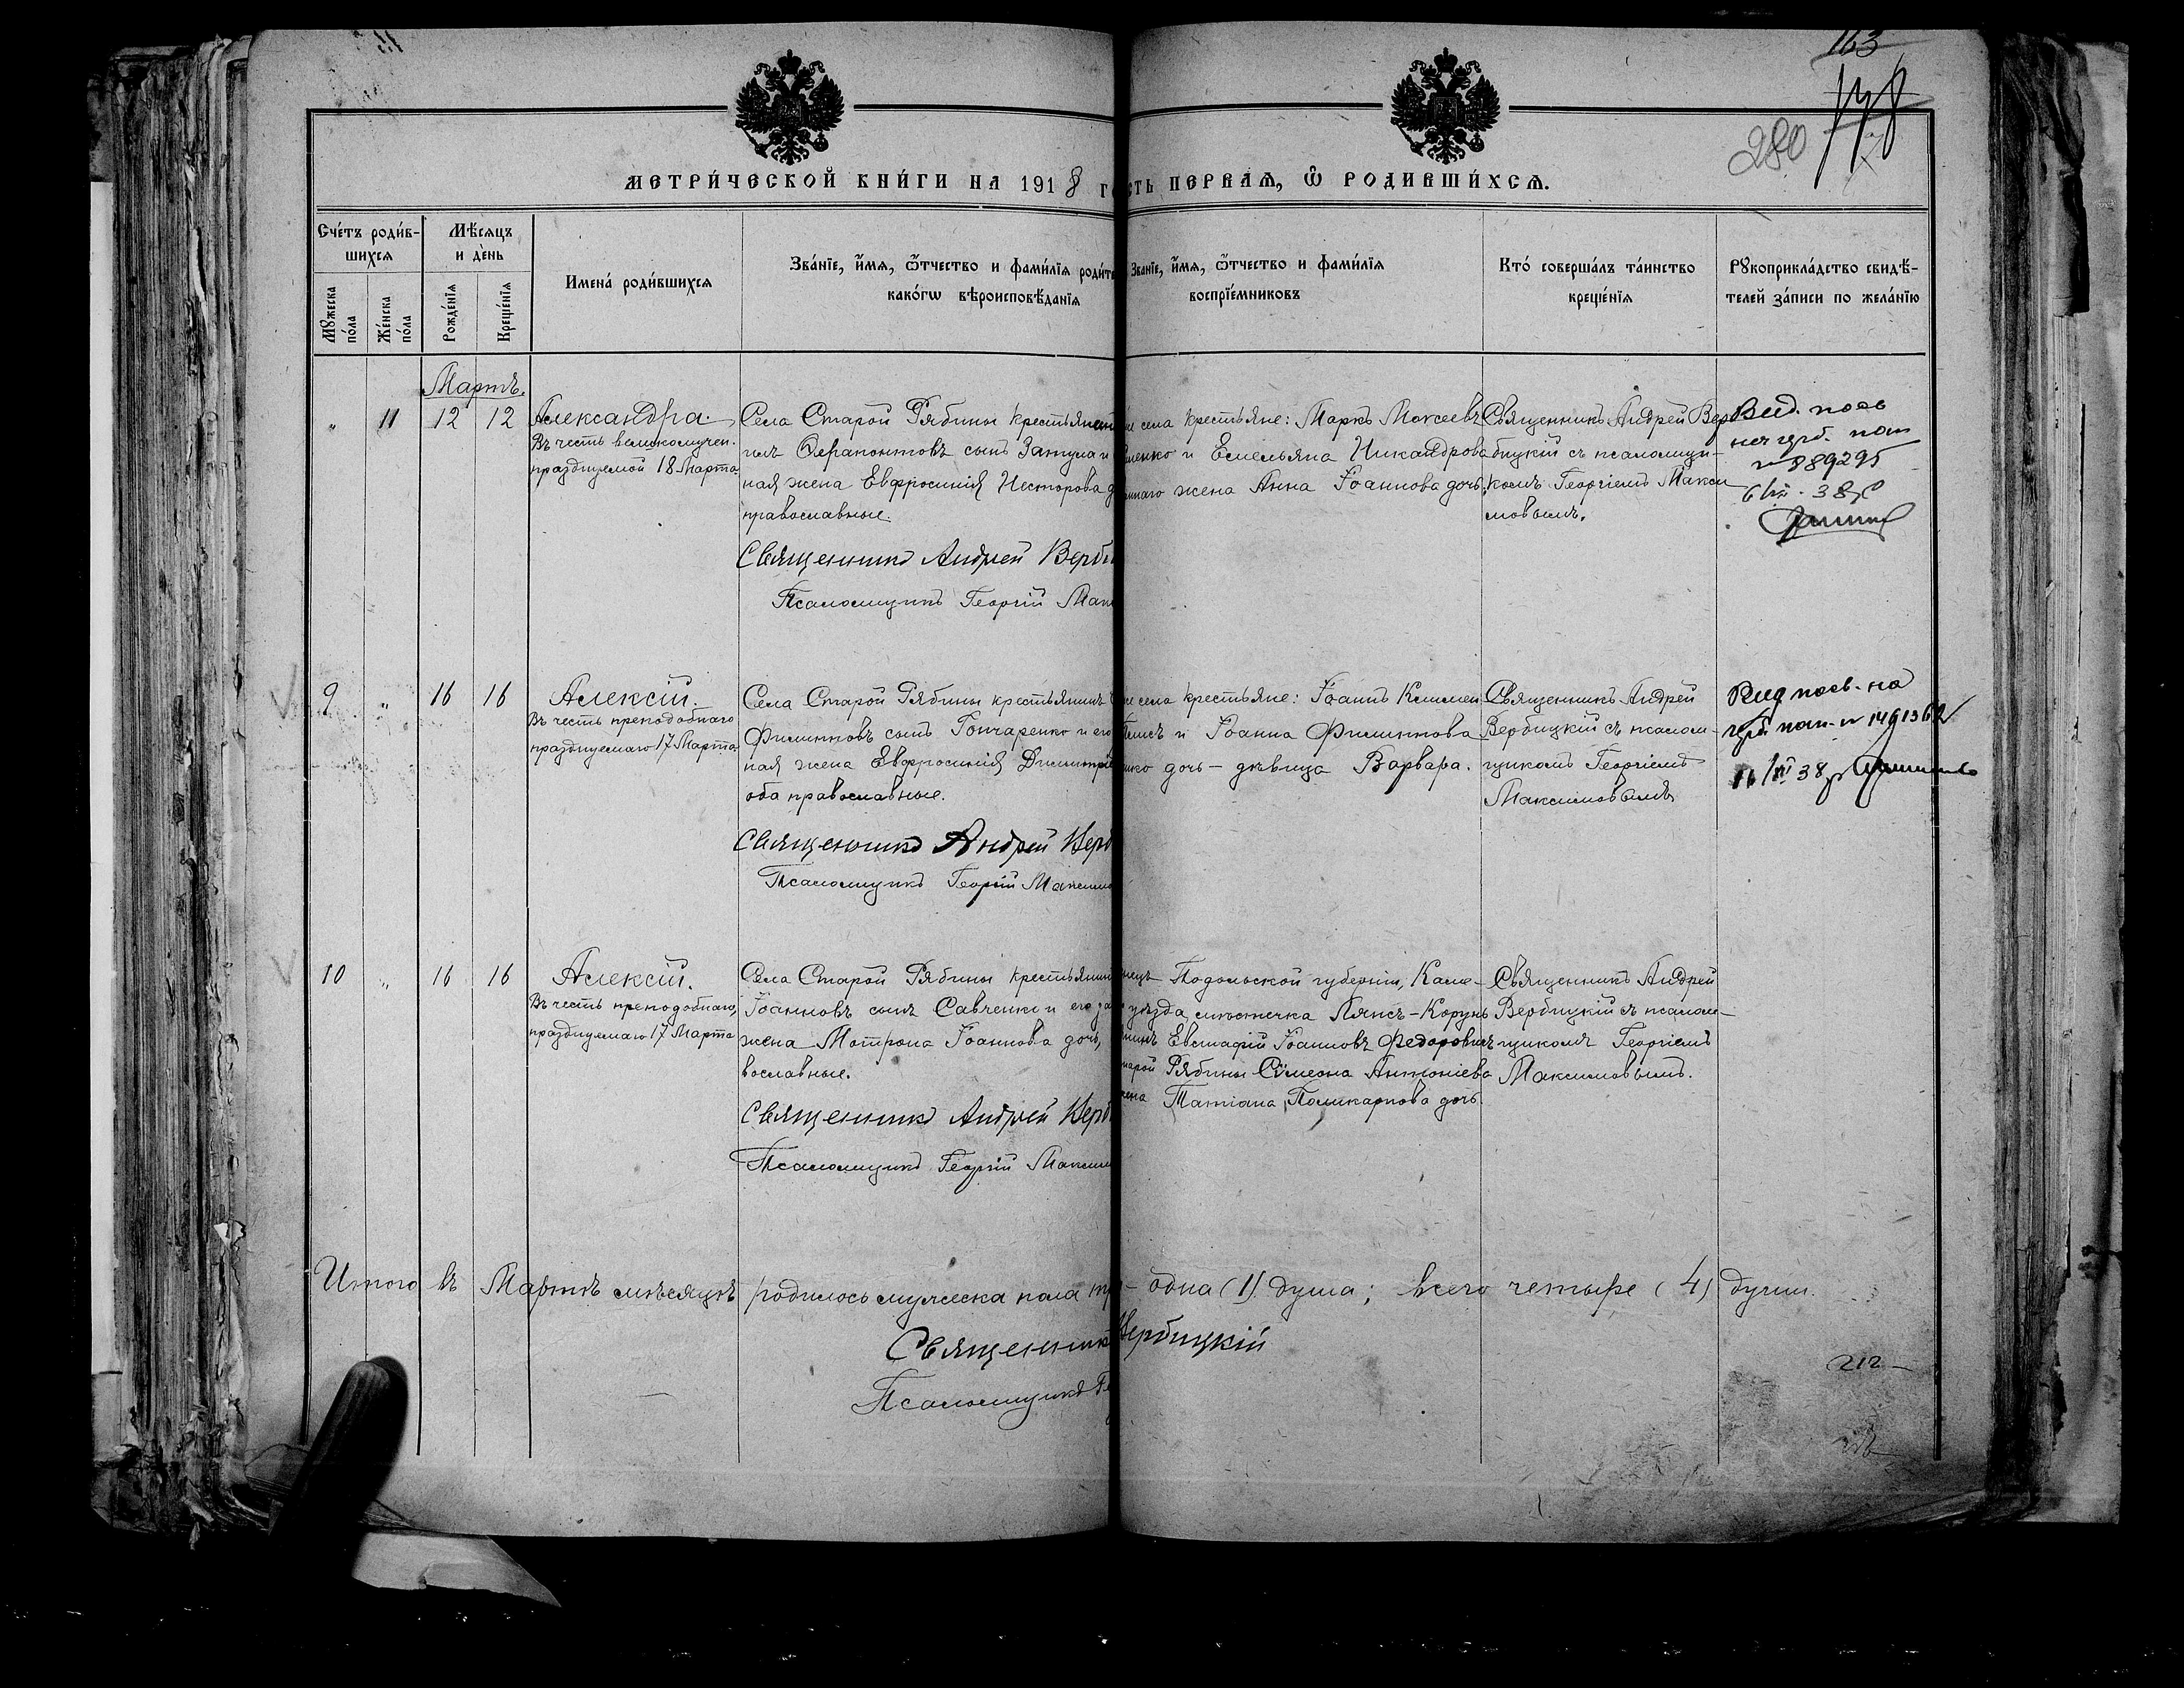 163
178
280
МЕТРИ́ЧЕСКОЙ КНИ́ГИ НА 1918
СТЬ ПЕРВАѦ, Ѡ РОДИВШИ́ХСѦ.
Сче́тъ роди́в-
шихсѧ
Мѣ́сѧцъ
и де́нь
Имена́ роди́вшихсѧ
Зва́нїе, и́мѧ, ѻ́тчество и фами́лїѧ роди́те
како́гѡ вѣроисповѣ́данїѧ
Зва́нїе, и́мѧ, ѻ́тчество и фами́лїѧ
воспрїе́мниковъ
Кто́ соверша́лъ та́инство
креще́нїѧ
Рꙋкоприкла́дство свидѣ́-
телей за́писи по жела́нїю
Мꙋ́жеска
по́ла
Же́нска
по́ла
Рожде́нїѧ
Креще́нїѧ
Мартъ.
" 11 12 12
Александра.
Въ честь великомучен.
празднуемой 18 Марта
Села Старой Рябины крестьянин
Ферапонтовъ сынъ Затула и
ная жена Евфросинія Несторова д
православные.
Священникъ Андрей Верби
Псаломщикъ Георгій Мак
села крестьяне: Маркъ Моисеевъ
енко и Емельяна Никандрова
жена Анна Іоаннова дочь.
Священникъ Андрей Вер
бицкій съ псаломщи-
комъ Георгіемъ Макси
мовымъ.
Вид. посв
на герб. пап
№ 889295
38
9 " 16 16
Алексій.
Въ честь преподобнаго
празднуемаго 17 Марта
Села Старой Рябины крестьянинъ
Филипповъ сынъ Гончаренко и его
ная жена Евфросинія Димитріе
оба православные.
Священникъ Андрей Верб
Псаломщикъ Георгій Максимо
села крестьяне: Іоаннъ Климен
и Іоанна Филиппова
енко дочь - дѣвица Варвара.
Священникъ Андрей
Вербицкій съ псалом-
щикомъ Георгіемъ
Максимовымъ
Вид посв. на
герб. пап. № 1491362
16/III 38
10 " 16 16
Алексій.
Въ честь преподобнаго,
празднуемаго 17 Марта
Села Старой Рябины крестьянин
Іоанновъ сынъ Савченко и его за
жена Мотрона Іоаннова дочь,
вославные.
Священникъ Андрей Верб
Псаломщикъ Георгій Максим
нецъ Подольской губерніи, Каме-
уѣзда, мѣстечка Лянсъ-Корунь
нинъ Евстафій Іоанновъ Федоровичъ
тарой Рябины Сѵмеона Антоніева
жена Татіана Поликарпова дочь.
Священникъ Андрей
Вербицкій съ псалом-
щикомъ Георгіемъ
Максимовымъ.
Итого въ Мартѣ мѣсяцѣ родилось мужеска пола тр
- одна (1) душа; всего четыре (4) души.
Священник
Вербицкій
Псаломщикъ Ге
212